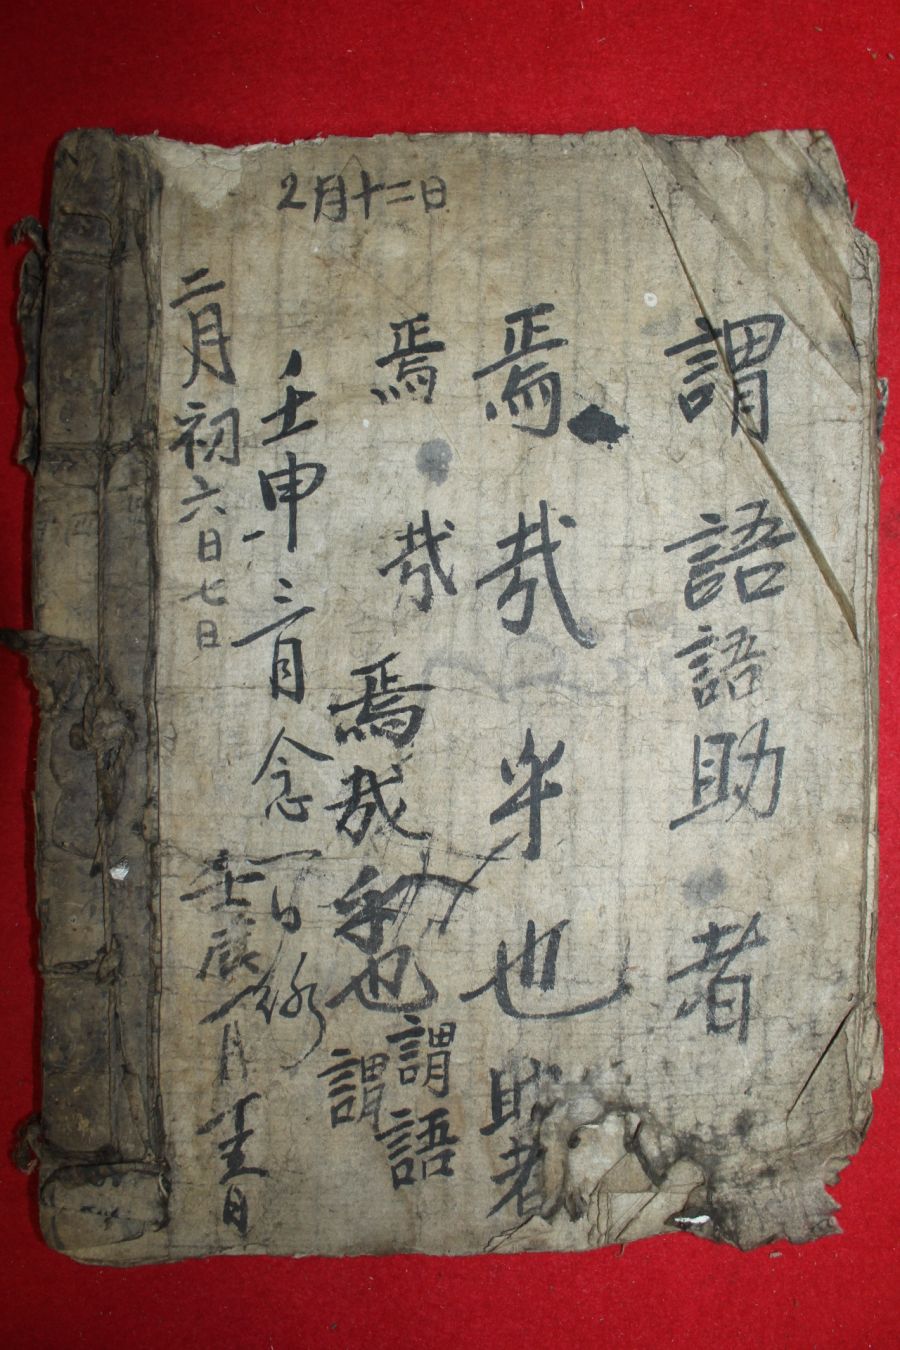 2月十二日
謂語語助者
焉哉乎也助者
焉哉焉哉乎也謂語
謂
壬申二月念一日
二月初六日七日
壬辰